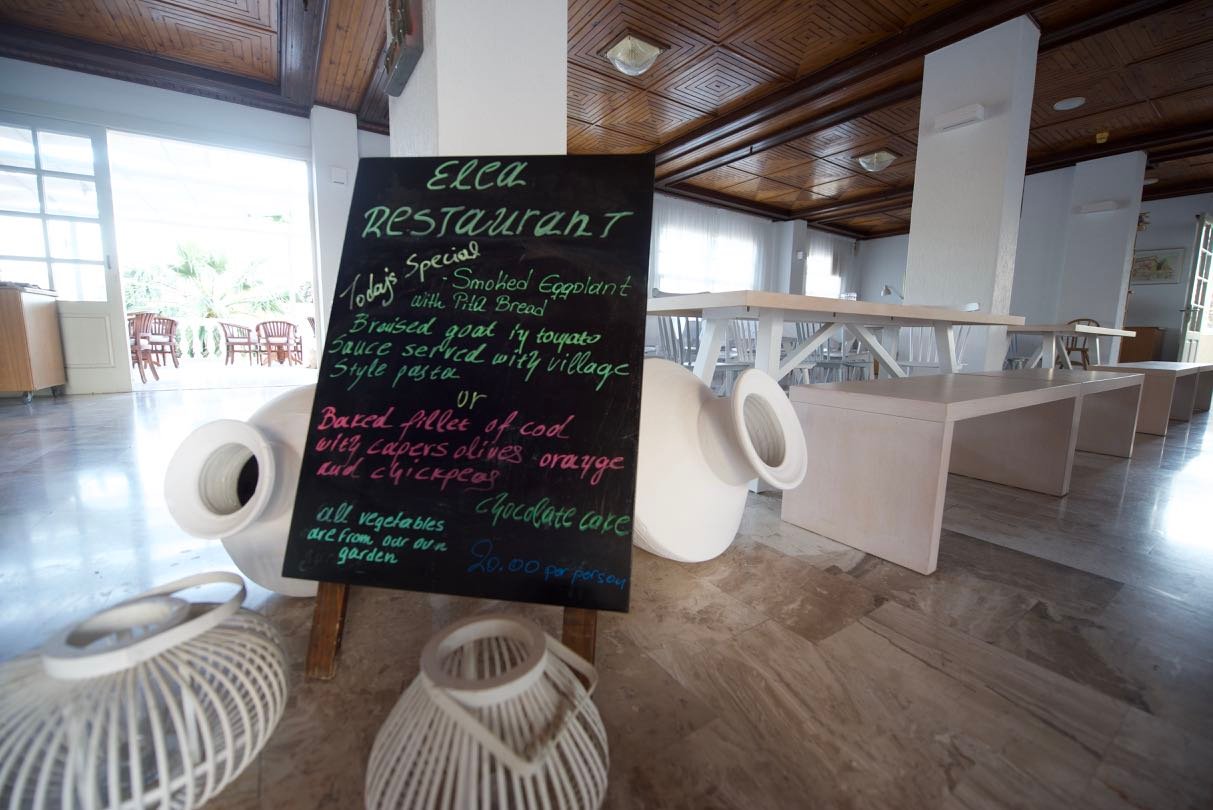 ELEA
RESTAURANT
Today's Special
- Smoked Eggplant
with Pita Bread
Braised goat in tomato
Sauce served with village
Style pasta
or
Baked fillet of cod
with capers olives orange
and chickpeas
chocolate cake
all vegetables
are from our own
garden
20.00 per person